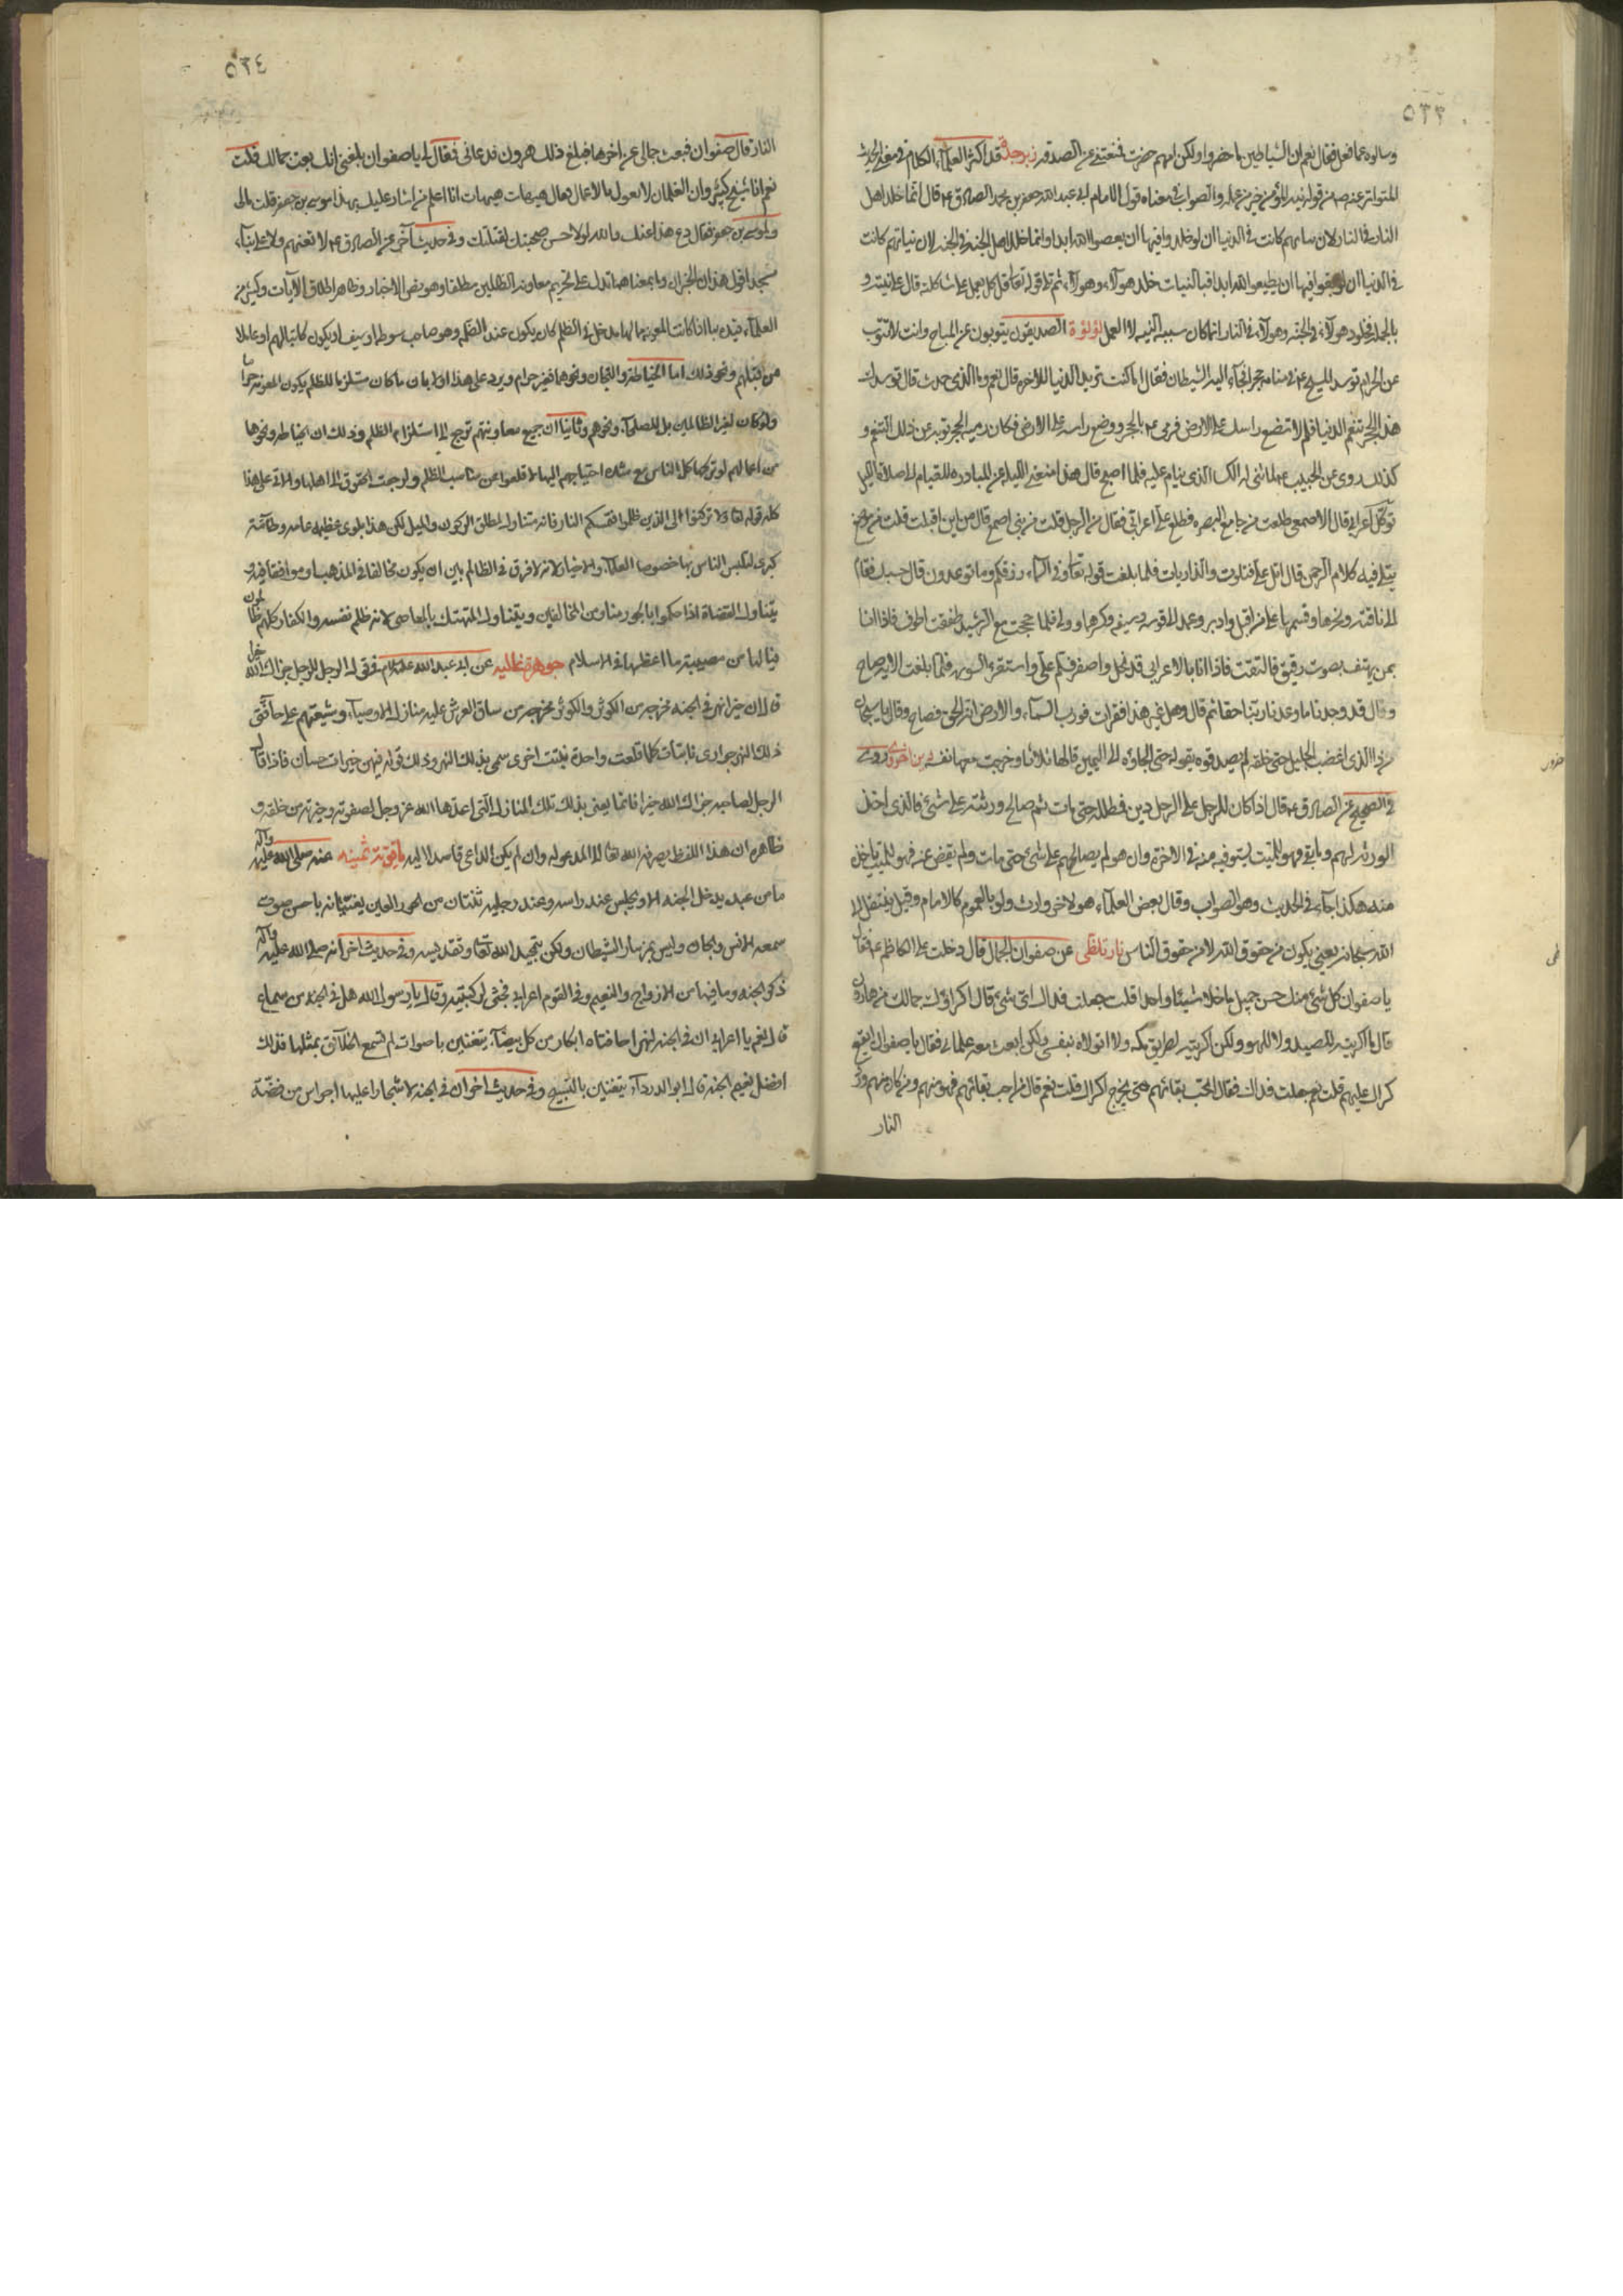 ٥٣٣
وسالوه عما فعل فقال نعم ان الشياطين ما حضروا ولكن امهم حضرت فمنعتني عن الصدقه زبرجدة قد اكثر العلمآء الكلام في معنى الحديث
المتواتر عنه ص من قوله نية المؤمن خير من عمله والصواب في معناه قول الامام ابي عبد الله جعفر بن محمد الصادق ع قال انما خلد اهل
النار في النار لان نياتهم كانت في الدنيا ان لو خلدوا فيها ان يعصوا الله ابدا وانما خلد اهل الجنة في الجنة لان نياتهم كانت
في الدنيا ان لو بقوا فيها ان يطيعوا الله ابدا فبالنيات خلد هولآء وهولآء ثم تلا قوله تعالى قل كل يعمل على شاكلته قال على نيته و
بالجملة فخلود هولآء في الجنه وهولآء في النار انما كان سببه النيه لا العمل لؤلؤة الصديقون يتوبون عن المباح وانت لا تتوب
عن الحرام توسد المسيح ع في منامه حجرا فجآء اليه الشيطان فقال اما كنت تريد الدنيا للاخرة قال نعم وما الذي حدث قال توسدك
هذا الحجر تنعم الدنيا فلم لا تضع راسك على الارض فرمى ع بالحجر ووضع راسه على الارض فكان رميه الحجر توبة عن ذلك التنعم و
كذلك روي عن الحبيب ع لما ثني له الكسا الذي ينام عليه فلما اصبح قال هذا منعني الليله عن المبادره للقيام الى صلاة الليل
توكل اعرابي قال الاصمعي طلعت من جامع البصره فطلع علي اعرابي فقال من الرجل قلت من بني اصمع قال من اين اقبلت قلت من موضع
يتلى فيه كلام الرحمن قال اتل علي فتلوت والذاريات فلما بلغت قوله تعالى وفي السمآء رزقكم وما توعدون قال حسبك فقام
الى ناقته ونحرها وقسمها على من اقبل وادبر وعمد الى قوسه وسيفه وكسرها وولى فلما حججت مع الرشيد طفقت اطوف فاذا انا
بمن يهتف بصوت رقيق فالتفت فاذا انا بالاعرابي قد نحل واصفر فسلم علي واستقرء السوره فلما بلغت الايه صاح
وقال قد وجدنا ما وعدنا ربنا حقا ثم قال وهل غير هذا فقرات فورب السمآء والارض انه لحق فصاح وقال يا سبحان
من ذا الذي اغضب الجليل حتى حلف لم يصدقوه بقوله حتى الجاوه الى اليمين قالها ثلاثا وخرجت معها نفسه
في الصحيح عن الصادق ع قال اذا كان للرجل على الرجل دين فمطله حتى مات ثم صالح ورثته على شئ فالذي اخذ
الورثه لهم وما بقي فهو للميت يستوفيه منه في الاخرة وان هو لم يصالحهم على شئ حتى مات ولم يقض عنه فهو للميت ياخذ
منه هكذا جآء في الحديث وهو الصواب وقال بعض العلمآء هو لاخر وارث ولو بالعموم كالامام وقيل ينتقل الى
الله سبحانه يعني يكون من حقوق الله لا من حقوق الناس نار تلظى عن صفوان الجمال قال دخلت على الكاظم ع فقال
يا صفوان كل شئ منك حسن جميل ما خلا شيئا واحدا قلت جعلت فداك اي شئ قال اكراؤك جمالك من هارون
قال ما اكريته للصيد ولا للهو ولكن اكريته لطريق مكه ولا اتولاه بنفسي ولكن ابعث معه غلماني فقال يا صفوان ايقع
كراك عليهم قلت نعم جعلت فداك فقال اتحب بقائهم حتى يخرج اكراك قلت نعم قال من احب بقائهم فهو منهم ومن كان منهم ورد
النار
٥٣٤
النار قال صفوان فبعت جمالي عن اخرها فبلغ ذلك هرون فدعاني فقال لي يا صفوان بلغني انك بعت جمالك قلت
نعم انا شيخ كبير وان الغلمان لا يعولوا بالاعمال فقال هيهات هيهات انا اعلم من اشار عليك بهذا موسى بن جعفر قلت مالي
ولموسى بن جعفر فقال دع هذا عنك والله لولا حسن صحبتك لقتلتك وفي حديث آخر عن الصادق ع لا تعنهم ولا على بنآء
مسجد اقول هذان الخبران وما بمعناهما تدل على تحريم معاونة الظالمين مطلقا وهو نص الاخبار وظاهر اطلاق الآيات وكثير من
العلمآء قيد بما اذا كانت المعونه بما لها مدخل في الظلم كان يكون عند الظلم وهو صاحب سوط او سيف او يكون كاتبا لهم او عاملا
من قبلهم ونحو ذلك اما الخياطة والتجارة ونحوهما فغير حرام ويرد على هذا اولا بان ما كان مستلزما للظلم يكون المعونة حراما
ولو كان لغير الظالمين بل للصلحآء ونحوهم وثانيا ان جميع معاونتهم ترجع الى استلزام الظلم وذلك ان الخياطه ونحوها
من اعمالهم لو تركها كل الناس مع شده احتياجهم اليها لاقلعوا عن مناصب الظلم ولرجعت الحقوق الى اهلها والاتي على هذا
كله قوله تعالى ولا تركنوا الى الذين ظلموا فتمسكم النار فانه متناول لمطلق الركون والميل لكن هذا بلوى عظيمه عامه وطامة
كبرى لتلبس الناس بها خصوصا العلمآء والاخيار لانه لا فرق في الظالم بين ان يكون مخالفا في المذهب او موافقا فيه و
يتناول القضاة اذا حكموا بالجور منا ومن المخالفين ويتناول المتهتك بالمعاصي لانه ظلم نفسه والكفار كلهم ظالمون
فيا لها من مصيبة ما اعظمها في الاسلام جوهرة غاليه عن ابي عبد الله عليه السلام في قول الرجل للرجل جزاك الله خيرا
قال ان خيرا نهر في الجنه مخرجه من الكوثر والكوثر مخرجه من ساق العرش عليه منازل الاوصيآء وشيعتهم على حافتي
ذلك النهر جواري نابتات كلما قلعت واحدة نبتت اخرى سمي بذلك النهر وذلك قوله فيهن خيرات حسان فاذا قال
الرجل لصاحبه جزاك الله خيرا فانما يعني بذلك تلك المنازل التي اعدها الله عز وجل لصفوته وخيرته من خلقه و
ظاهره ان هذا اللفظ يصرفه الله تعالى الى المدعو له وان لم يكن الداعي قاصدا اليه ياقوتة ثمينه عنه صلى الله عليه وآله
ما من عبد يدخل الجنه الا ويجلس عند راسه وعند رجليه ثنتان من الحور العين يغنيانه باحسن صوت
سمعه الانس والجان وليس بمزمار الشيطان ولكن بتمجيد الله تعالى وتقديسه وفي حديث اخر انه صلى الله عليه وآله
ذكر الجنه وما فيها من الازواج والنعيم وفي القوم اعرابي فجثى لركبتيه وقال يا رسول الله هل في الجنه من سماع
قال نعم يا اعرابي ان في الجنه لنهرا حافتاه ابكار من كل بيضآء يتغنين باصوات لم تسمع الخلآئق بمثلها فذلك
افضل نعيم الجنه قال ابو الدردآء يتغنين بالتسبيح وفي حديث اخر ان في الجنه لاشجارا عليها اجراس من فضة